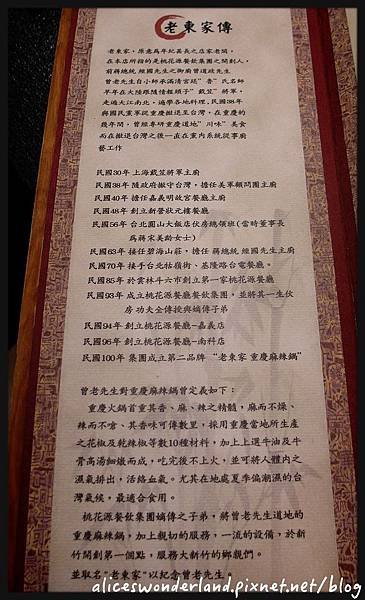 老東家傳
老東家，原意為年紀甚長之店家老闆，
在本店所指的是桃花源餐飲集團之開創人，
前蔣總統 經國先生之御廚曾道政先生
曾老先生自小師承滿清宮廷"香"氏名師
早年在大陸跟隨情報頭子"戴笠"將軍，
走遍大江南北，遍學各地料理，民國38年
與國民黨軍從重慶撤退至台灣，在重慶的
幾年間，曾經專研重慶道地"川味"美食
而在撤退台灣之後一直在黨內系統從事廚
藝工作
民國30年 上海戴笠將軍主廚
民國38年 隨政府撤守台灣，擔任美軍顧問團主廚
民國40年 擔任嘉義明故宮餐廳主廚
民國48年 創立新營狀元樓餐廳
民國56年 台北圓山大飯店伙房總領班(當時董事長
為蔣宋美齡女士)
民國63年 接任碧海山莊，擔任 蔣總統 經國先生主廚
民國70年 接手台北牯嶺街、基隆路台電餐廳。
民國85年 於雲林斗六市創立第一家桃花源餐廳
民國93年 成立桃花源餐廳餐飲集團，並將其一生伙
房 功夫全傳授與嫡傳子弟
民國94年 創立桃花源餐廳-嘉義店
民國96年 創立桃花源餐廳-南科店
民國100年 集團成立第二品牌 "老東家 重慶麻辣鍋"
曾老先生對重慶麻辣鍋曾定義如下：
重慶火鍋首重其香、麻、辣之精髓，麻而不燥、
辣而不嗆、其香味可傳數里，採用重慶當地所生產
之花椒及乾辣椒等數10種材料，加上上選牛油及牛
骨高湯細燉而成，吃完後不上火，並可將人體內之
濕氣排出，活絡血氣。尤其在地處夏季偏潮濕的台
灣氣候，最適合食用。
桃花源餐飲集團嫡傳之子弟，將曾老先生道地的
重慶麻辣鍋，加上親切的服務，一流的設備，於新
竹開創第一個點，服務大新竹的鄉親們。
並取名"老東家"以紀念曾老先生。
aliceswonderland.pixnet.net/blog